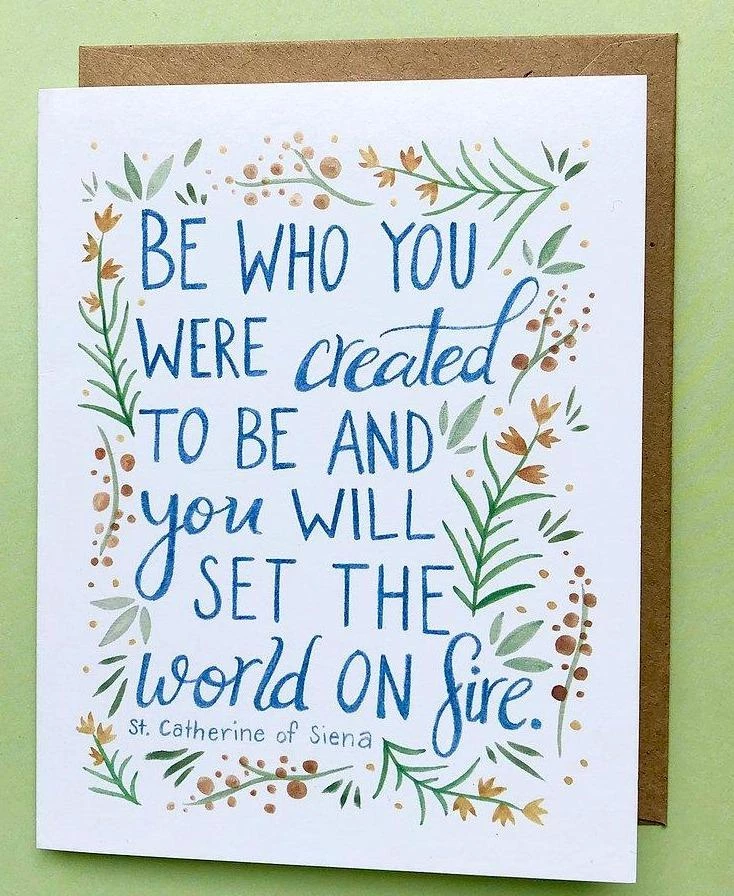 BE WHO YOU
WERE created
TO BE AND
you WILL
SET THE
world ON fire.
St. Catherine of Siena